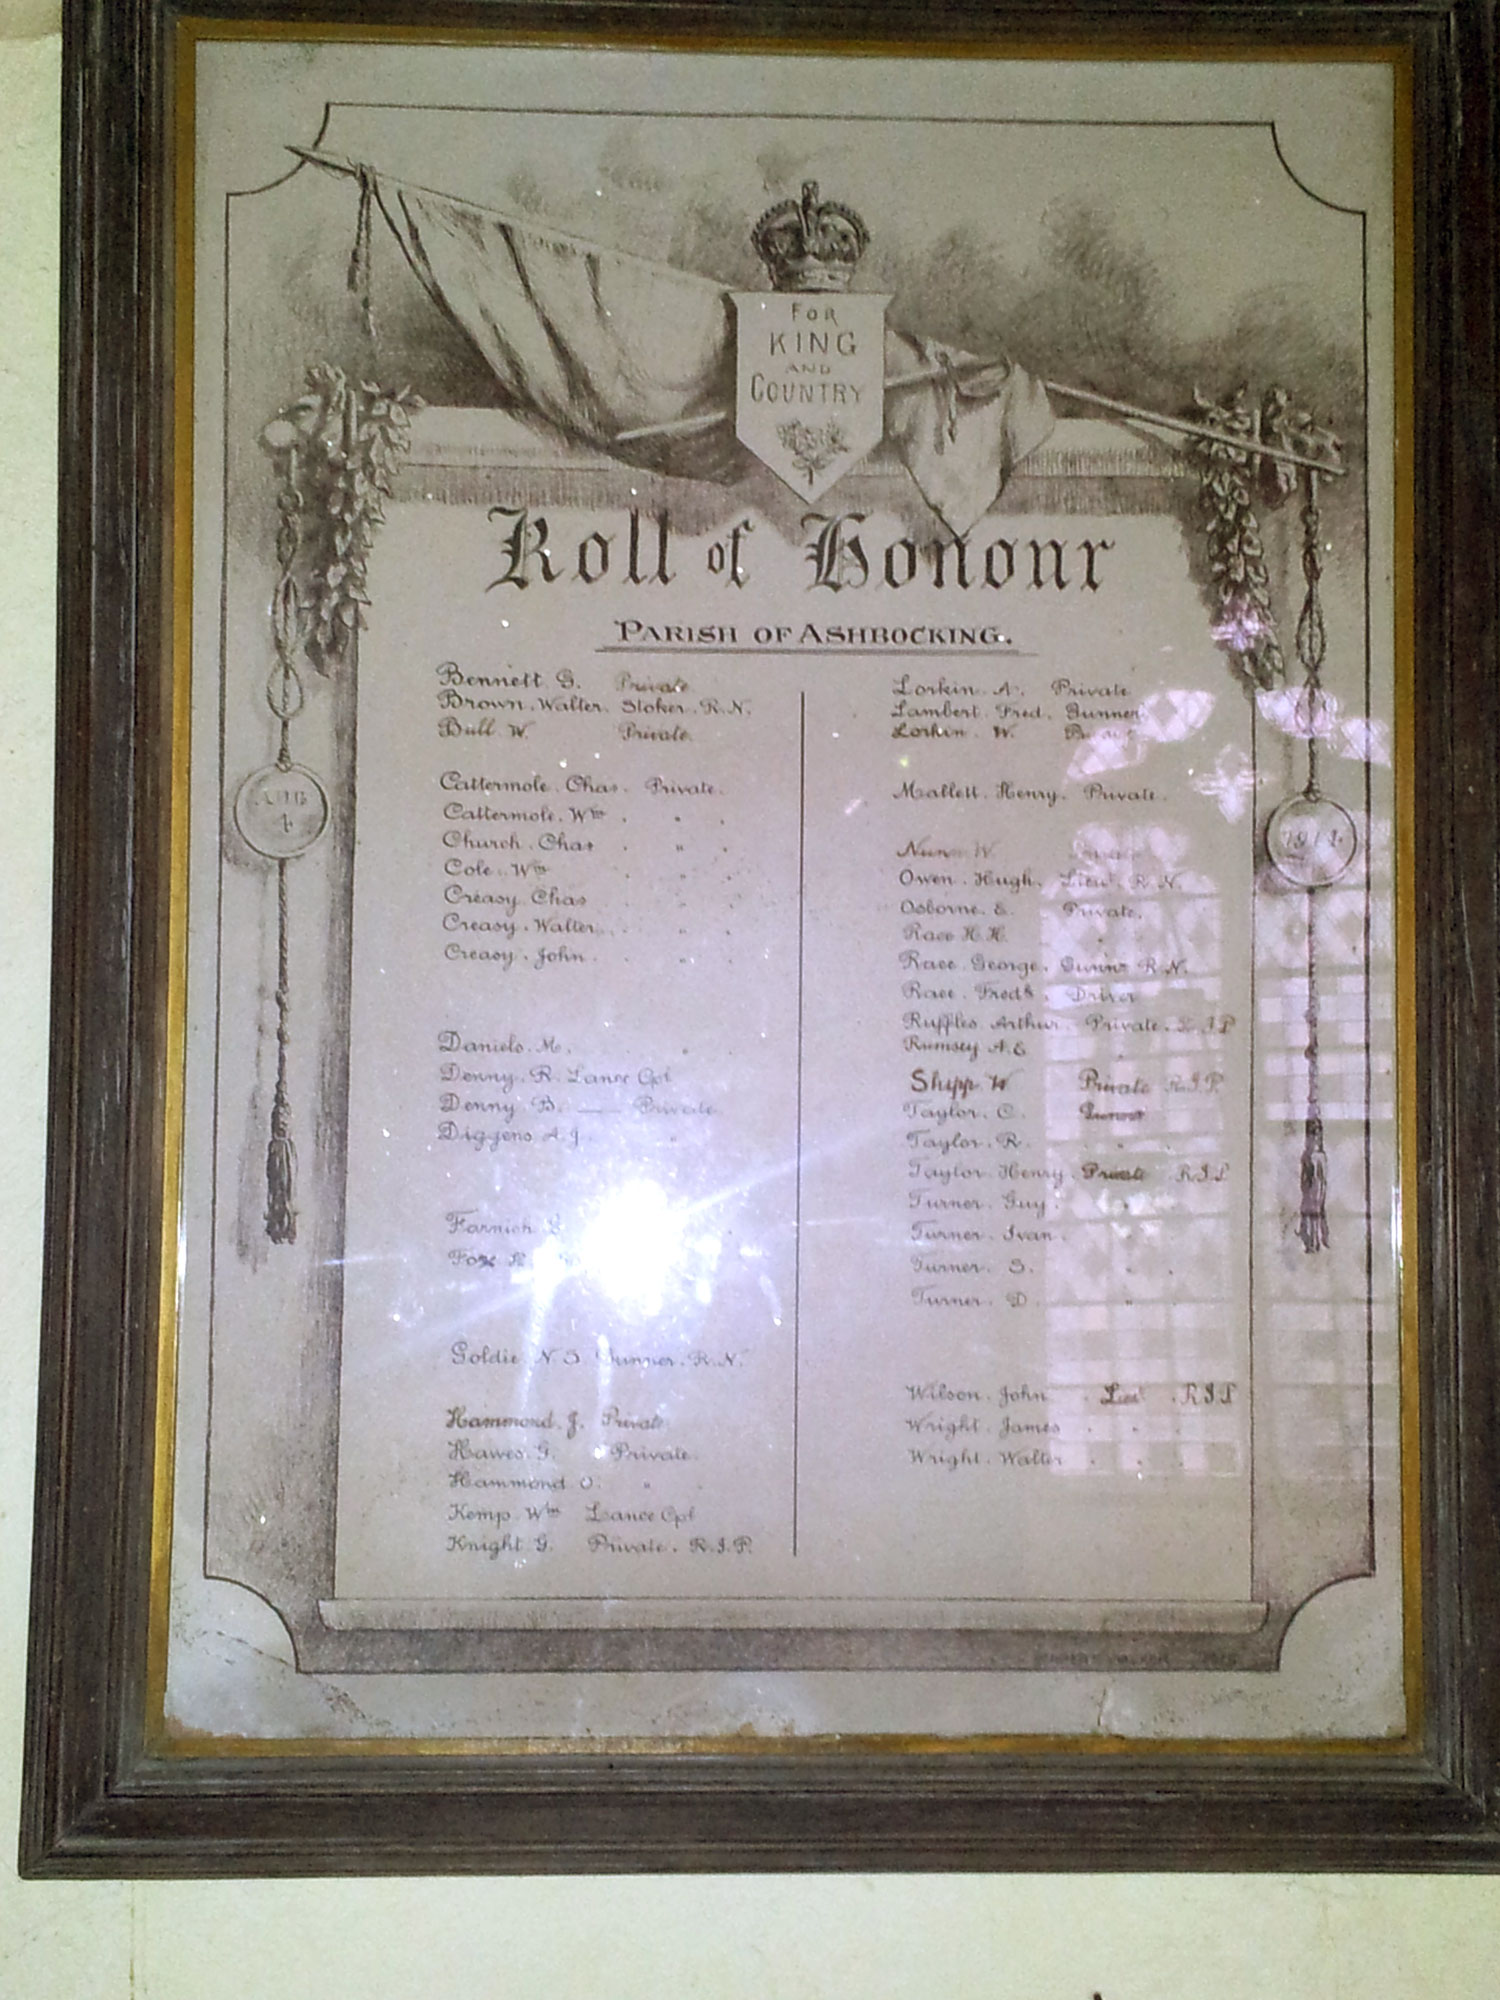 FOR
KING
AND
COUNTRY
Roll of Honour
PARISH OF ASHBOCKING.
AUG
4
1914
Bennett. G. Private
Brown. Walter. Stoker. R.N.
Bull. W. Private.
Cattermole. Chas. Private.
Cattermole. Wm . " .
Church. Chas . " .
Cole. Wm . " .
Creasy. Chas . " .
Creasy. Walter . " .
Creasy. John . " .
Daniels. M. " .
Denny. R. Lance Cpl
Denny. B. — Private.
Diggens A.J. "
Farnish
Fox
Goldie N S Gunner. R.N.
Hammond. J. Private
Hawes. G. Private.
Hammond O. " .
Kemp. Wm Lance Cpl
Knight G. Private. R.I.P.
Lorkin. A. Private
Lambert. Fred. Gunner
Lorkin. W. Private
Mallett. Henry. Private.
Nunn W. Private
Owen. Hugh. Lieut. R.N.
Osborne. E. Private.
Race H.H. "
Race. George. Gunnr R.N.
Race. Fredk. Driver
Ruffles Arthur. Private. R.I.P
Rumsey A.E "
Shipp. W Private R.I.P.
Taylor. C. Gunner
Taylor. R. "
Taylor Henry. Private R.I.P
Turner. Guy. "
Turner. Ivan "
Turner. S. " .
Turner. D. " .
Wilson. John . Lieut . R.I.P
Wright. James . " .
Wright. Walter . " .